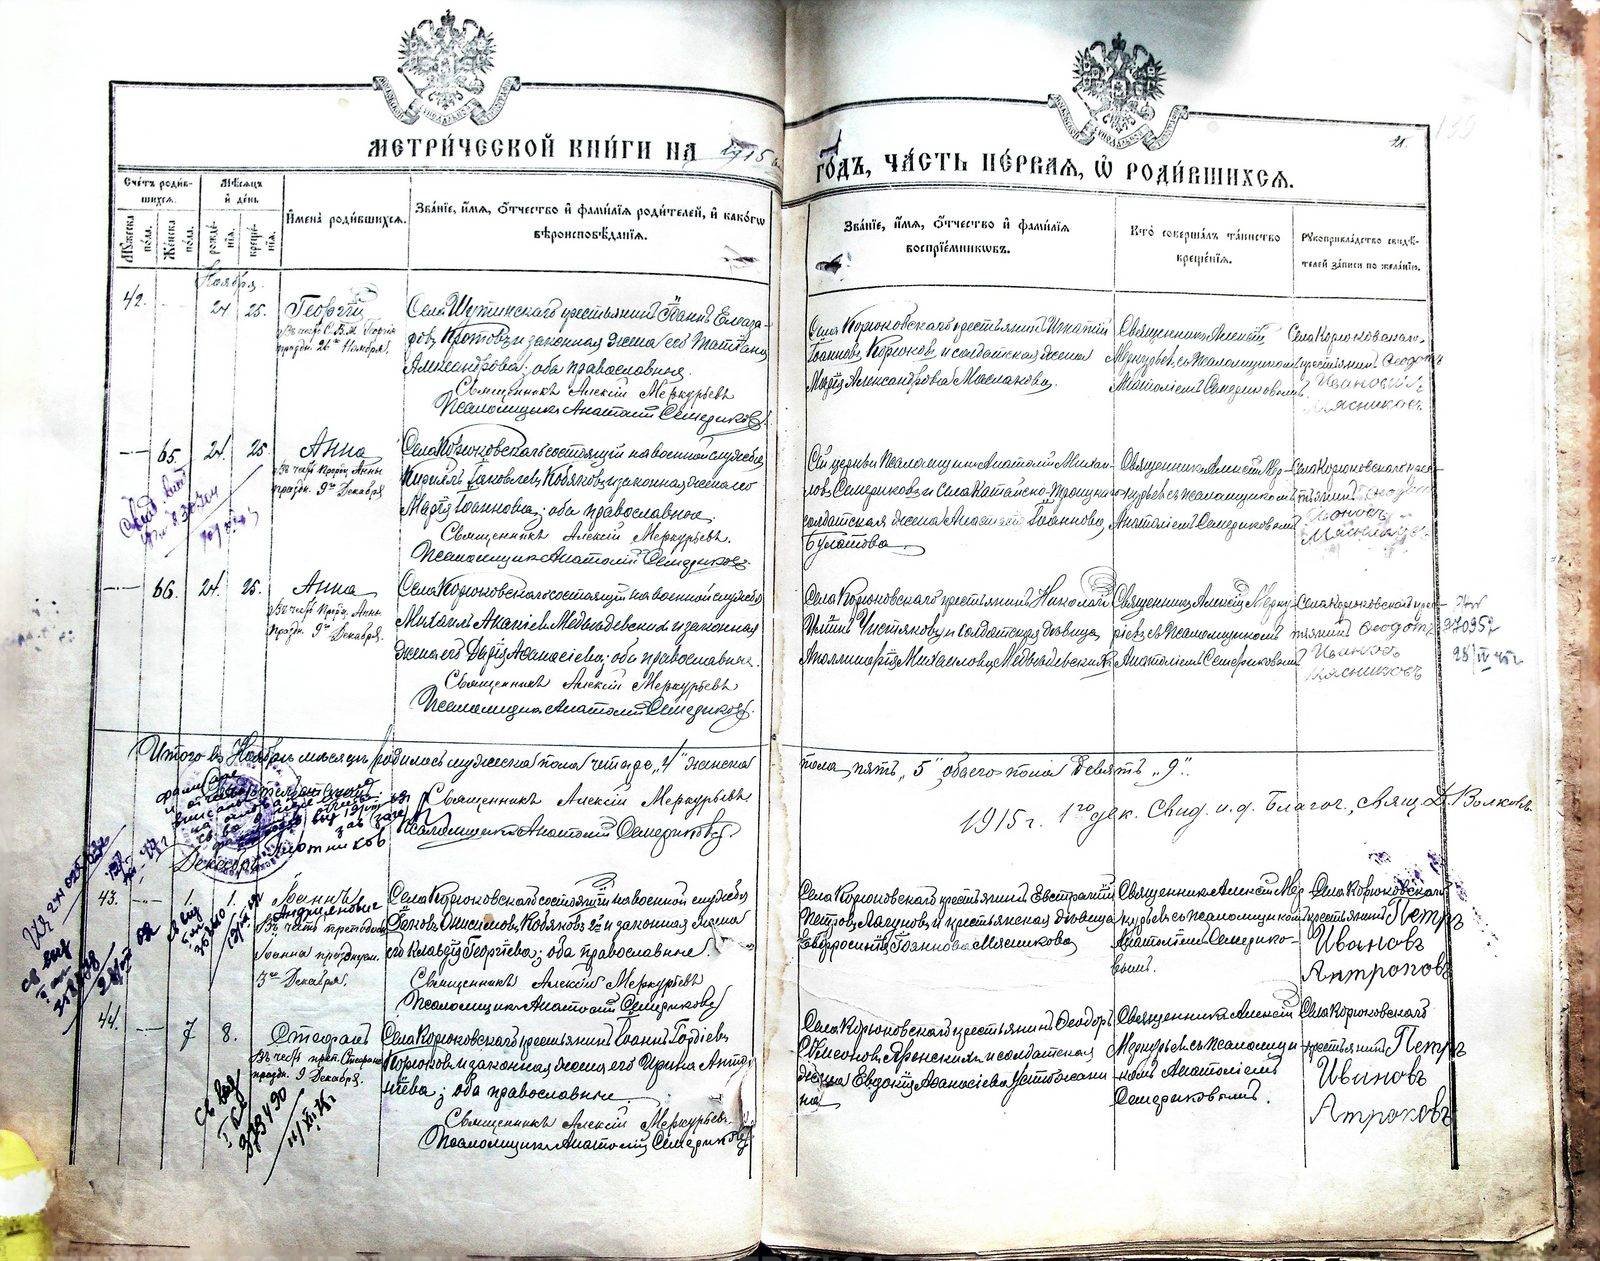 МЕТРИ́ЧЕСКОЙ КНИ́ГИ НА 1915
ГО́ДЪ, ЧА́СТЬ ПЕ́РВАЯ, Ѿ РОДИ́ВШИХСЯ.
21.
Сче́тъ роди́в-
шихся.
Мꙋ́жеска по́ла.
Же́нска по́ла.
Мѣ́сяцъ и де́нь
рожде́-нія.
креще́-нія.
Имена̀ роди́вшихся.
Зва́ніе, и́мя, о́тчество и фами́лія роди́телей, и како́гω
вѣроисповѣ́данія.
Зва́ніе, и́мя, о́тчество и фами́лія
воспріе́мникωвъ.
Кто̀ соверша́лъ та́инство
креще́нія.
Рꙋкоприкла́дство свидѣ́-
телей за́писи по жела́нію.
Ноября.
42. 24 25. Георгій
праздн. 26го Ноября.
Села Шутинскаго крестьянинъ Іоаннъ Елеаза-
ровъ Кротовъ и законная жена его Татіана
Александрова; оба православные.
Священникъ Алексій Меркурьевъ
Псаломщикъ Анатолій Семериковъ.
Села Корюковскаго крестьянинъ Игнатій
Іоанновъ Корюковъ и солдатская жена
Марія Александрова Маслакова.
Священникъ Алексій
Меркурьевъ съ псаломщикомъ
Анатоліемъ Семериковымъ.
Села Корюковскаго
крестьянинъ Ѳеодотъ
Ивановъ
Мясниковъ
65. 24. 25. Анна
Въ честь Прор. Анны
праздн. 9го Декабря
Села Корюковскаго состоящій на военной службѣ
Кириллъ Іаковлевъ Кобяковъ и законная жена его
Марія Іоанновна; оба православные.
Священникъ Алексій Меркурьевъ.
Псаломщикъ Анатолій Семериковъ.
Сей церкви Псаломщикъ Анатолій Михаи-
ловъ Семериковъ и Села Катайско-Троицкаго
солдатская жена Анастасія Іоаннова
Булатова.
Священникъ Алексій Мер-
курьевъ съ псаломщикомъ
Анатоліемъ Семериковымъ
Села Корюковскаго крес-
тьянинъ Ѳеодотъ
Ивановъ
Мясниковъ
66. 24. 25. Анна
Въ честь Прор. Анны
праздн. 9го Декабря.
Села Корюковскаго состоящій на военной службѣ
Михаилъ Ананіевъ Медвѣдевскихъ и законная
жена его Дарія Аѳанасіева; оба православные.
Священникъ Алексій Меркурьевъ
Псаломщикъ Анатолій Семериковъ.
Села Корюковскаго крестьянинъ Николай
Чистяковъ и солдатская дѣвица
Аполлинарія Михаилова Медвѣдевскихъ.
Священникъ Алексій Мерку-
рьевъ съ Псаломщикомъ
Анатоліемъ Семериковымъ
Села Корюковскаго крес-
тьянинъ Ѳеодотъ
Ивановъ
Мясниковъ
370957
28/IV 45 г
Итого въ Ноябрѣ мѣсяцѣ родилось мужеска пола четыре „4“ женска
пола пять „5“, обоего пола девять „9“.
Священникъ Алексій Меркурьевъ
Псаломщикъ Анатолій Семериковъ.
1915 г. 1го дек. Свид. и. д. Благоч., свящ. Д. Волковъ.
Декабрь
43. 1. 1. Іоаннъ
Въ честь преподобн.
Іоанна праздн.
3го Декабря.
Села Корюковскаго состоящій на военной службѣ
Іаковъ Анисимовъ Кобяковъ и законная жена
его Клавдія Георгіева; оба православные.
Священникъ Алексій Меркурьевъ
Псаломщикъ Анатолій Семериковъ
Села Корюковскаго крестьянинъ Евстратій
Петровъ Лагуновъ и крестьянская дѣвица
Евфросинія Іоаннова Мясникова
Священникъ Алексій Мер-
курьевъ съ псаломщикомъ
Анатоліемъ Семерико-
вымъ.
Села Корюковскаго
крестьянинъ Петръ
Ивановъ
Антроповъ
44. 7 8. Стефанъ
Въ честь преп. Стефана
праздн. 9 Декабря.
Села Корюковскаго крестьянинъ Іоаннъ Гордіевъ
Корюковъ и законная жена его Ирина
оба православные.
Священникъ Алексій Меркурьевъ
Псаломщикъ Анатолій Семериковъ
Села Корюковскаго крестьянинъ Ѳеодоръ
Симеоновъ и солдатская
жена Евдокія Аѳанасіева Устюжани-
на
Священникъ Алексій
Меркурьевъ съ псаломщи-
комъ Анатоліемъ
Семериковымъ.
Села Корюковскаго
крестьянинъ Петръ
Ивановъ
Атроковъ
373490